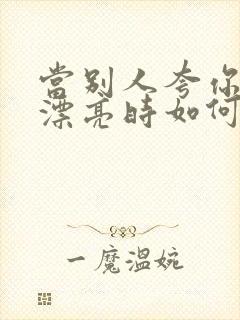 當別人夸你
漂亮時如何
一魔溫婉